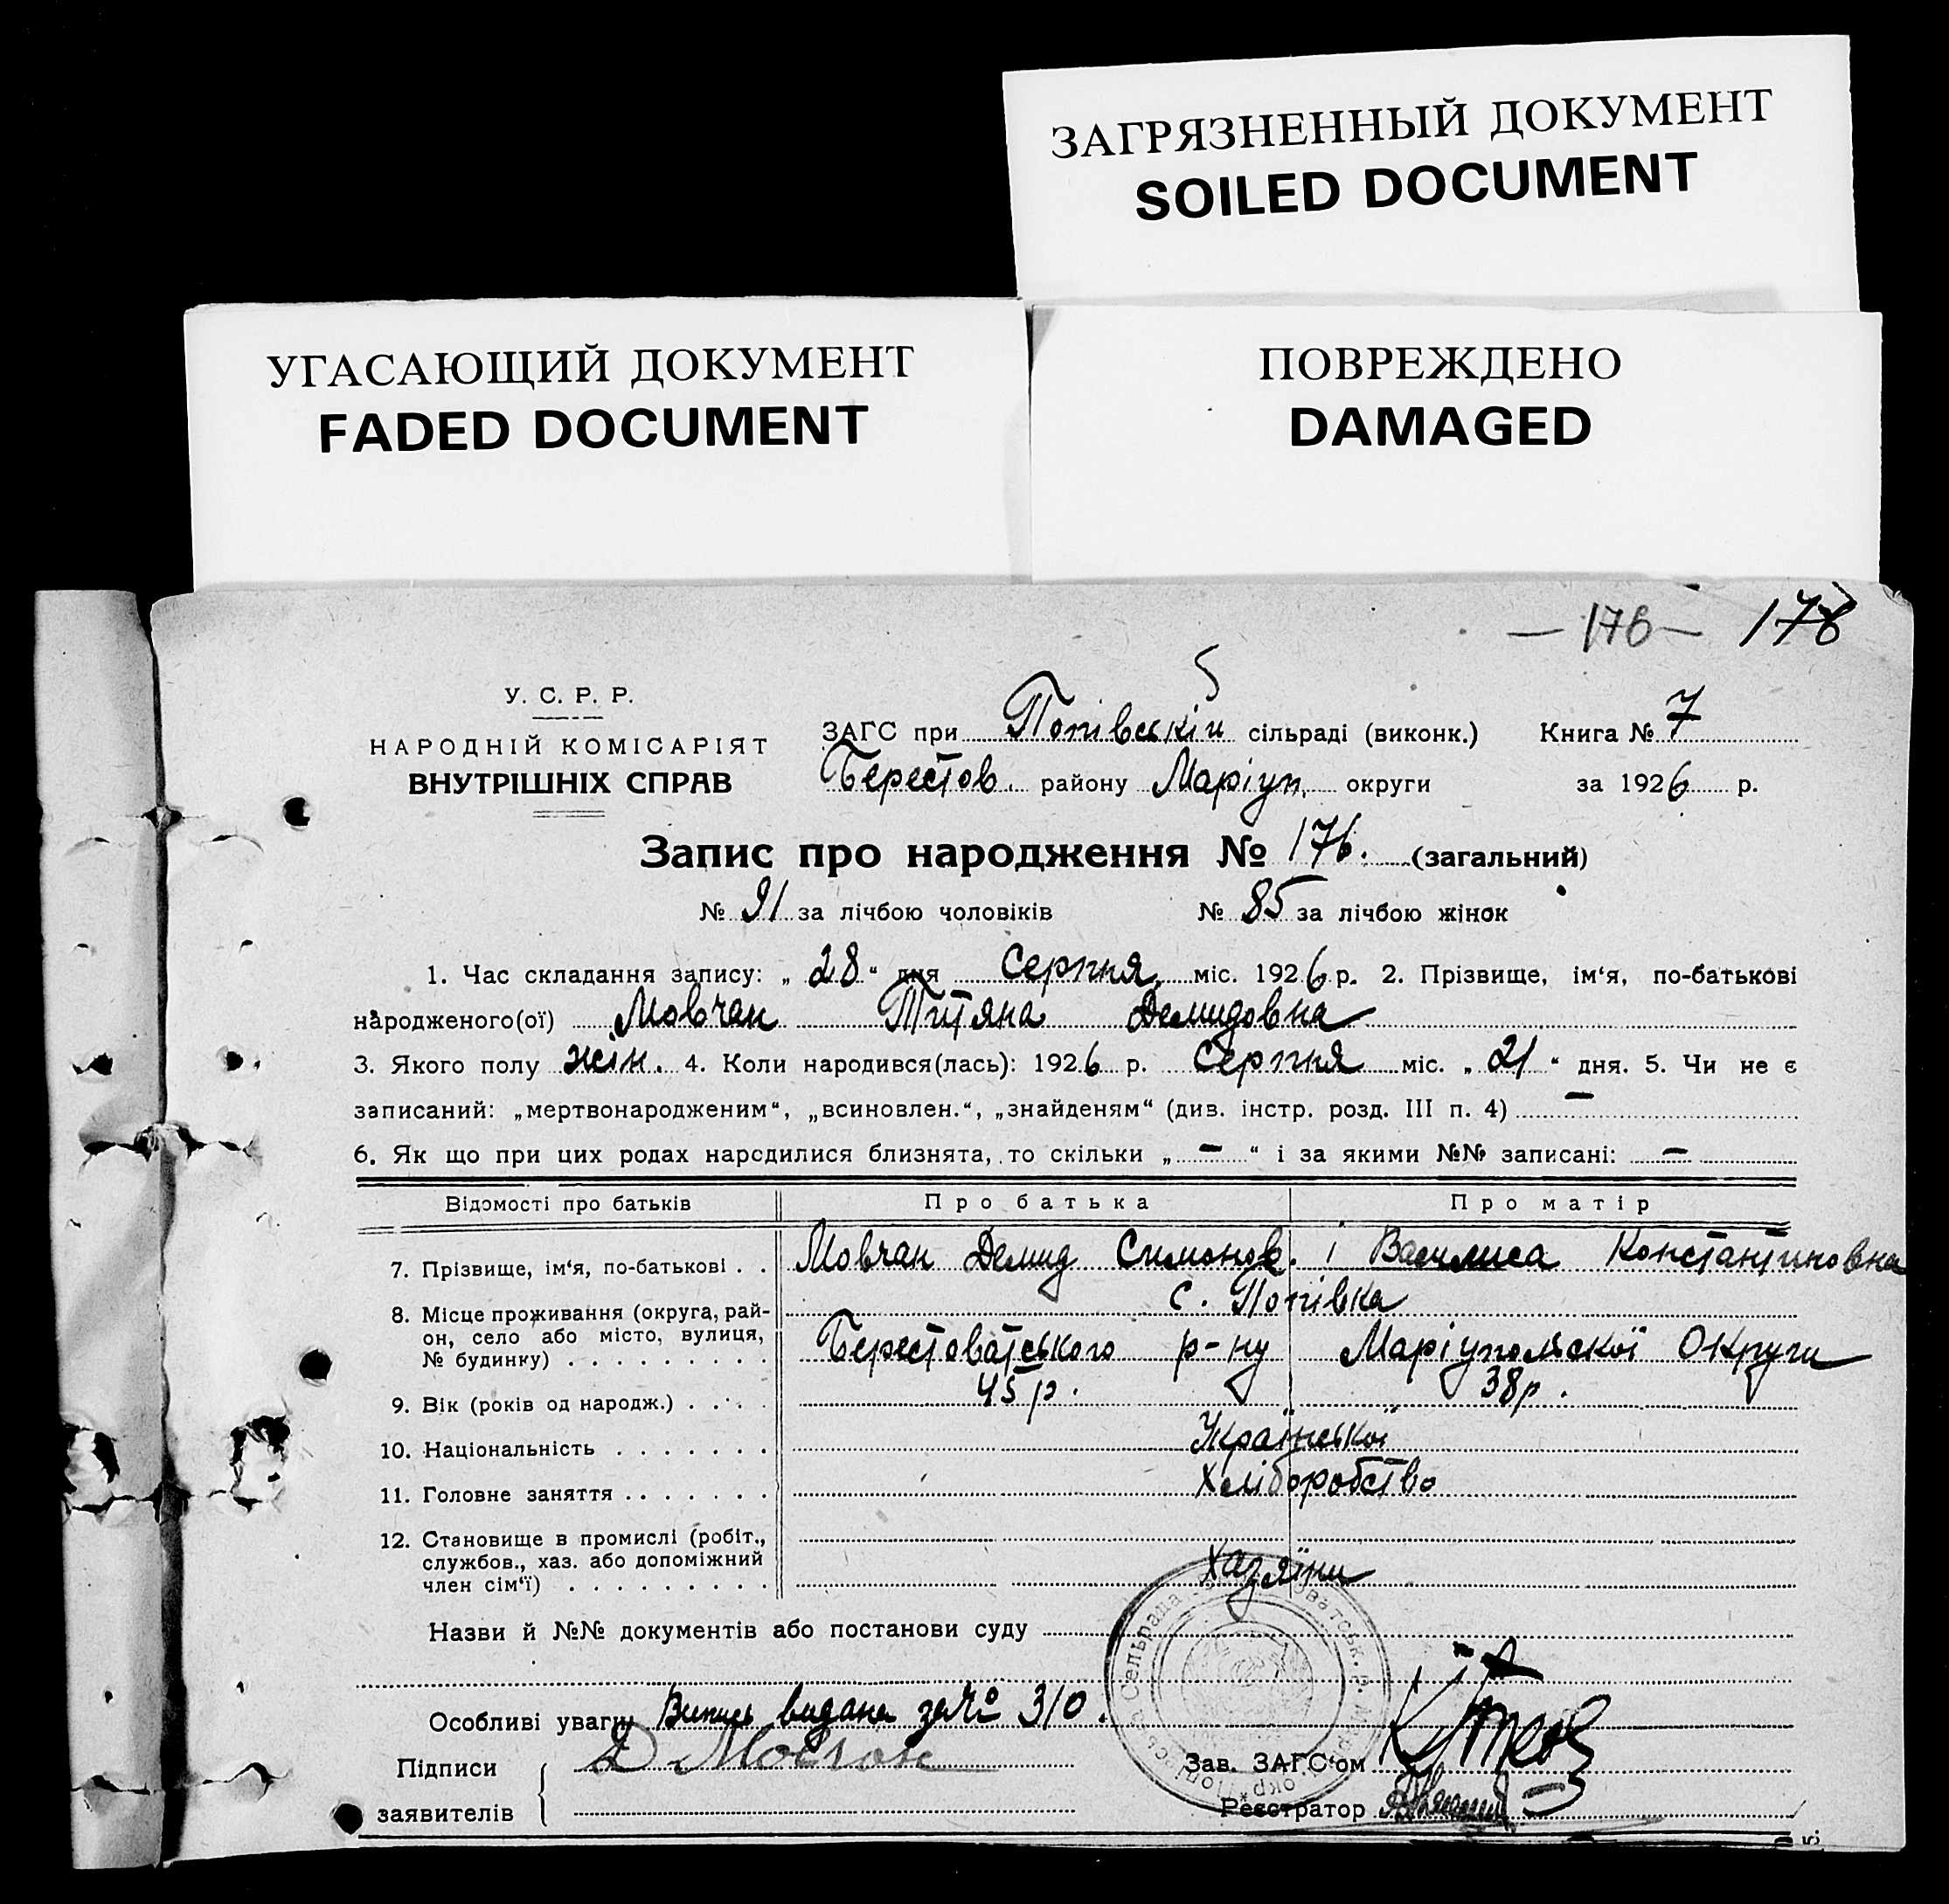 ЗАГРЯЗНЕННЫЙ ДОКУМЕНТ
SOILED DOCUMENT
УГАСАЮЩИЙ ДОКУМЕНТ
FADED DOCUMENT
ПОВРЕЖДЕНО
DAMAGED
— 176 — 178
У. С. Р. Р.
НАРОДНІЙ КОМІСАРІЯТ
ВНУТРІШНІХ СПРАВ
ЗАГС при Попівській сільраді (виконк.) Книга № 7
Берестов. району Маріуп. округи за 1926 р.
Запис про народження № 176. (загальний)
№ 91 за лічбою чоловіків № 85 за лічбою жінок
1. Час складання запису: „ 28 “ дня Серпня міс. 1926 р. 2. Прізвище, ім‘я, по-батькові
народженого(ої) Мовчан Титяна Демидовна
3. Якого полу жін. 4. Коли народився(лась): 1926 р. Серпня міс. „ 21 “ дня. 5. Чи не є
записаний: „мертвонародженим“, „всиновлен.“, „знайденям“ (див. інстр. розд. III п. 4) —
6. Як що при цих родах народилися близнята, то скільки „ — “ і за якими №№ записані: —
Відомості про батьків Про батька Про матір
7. Прізвище, ім‘я, по-батькові . . Мовчан Демид Симонов. і Василиса Константиновна
8. Місце проживання (округа, рай- с. Попівка
он, село або місто, вулиця,
№ будинку) . . . . . . . . . Берестоватського р-ну Маріупольскої Округи
9. Вік (років од народж.) . . . . 45 р. 38 р.
10. Національність . . . . . . . Української
11. Головне заняття . . . . . . . Хліборобство
12. Становище в промислі (робіт.,
службов., хаз. або допоміжний
член сім‘ї) . . . . . . . . . Хазяїни
Назви й №№ документів або постанови суду
Особливі уваги Випись видана за № 310.
Підписи Д Мовчан
заявителів
Зав. ЗАГС‘ом
Реєстратор